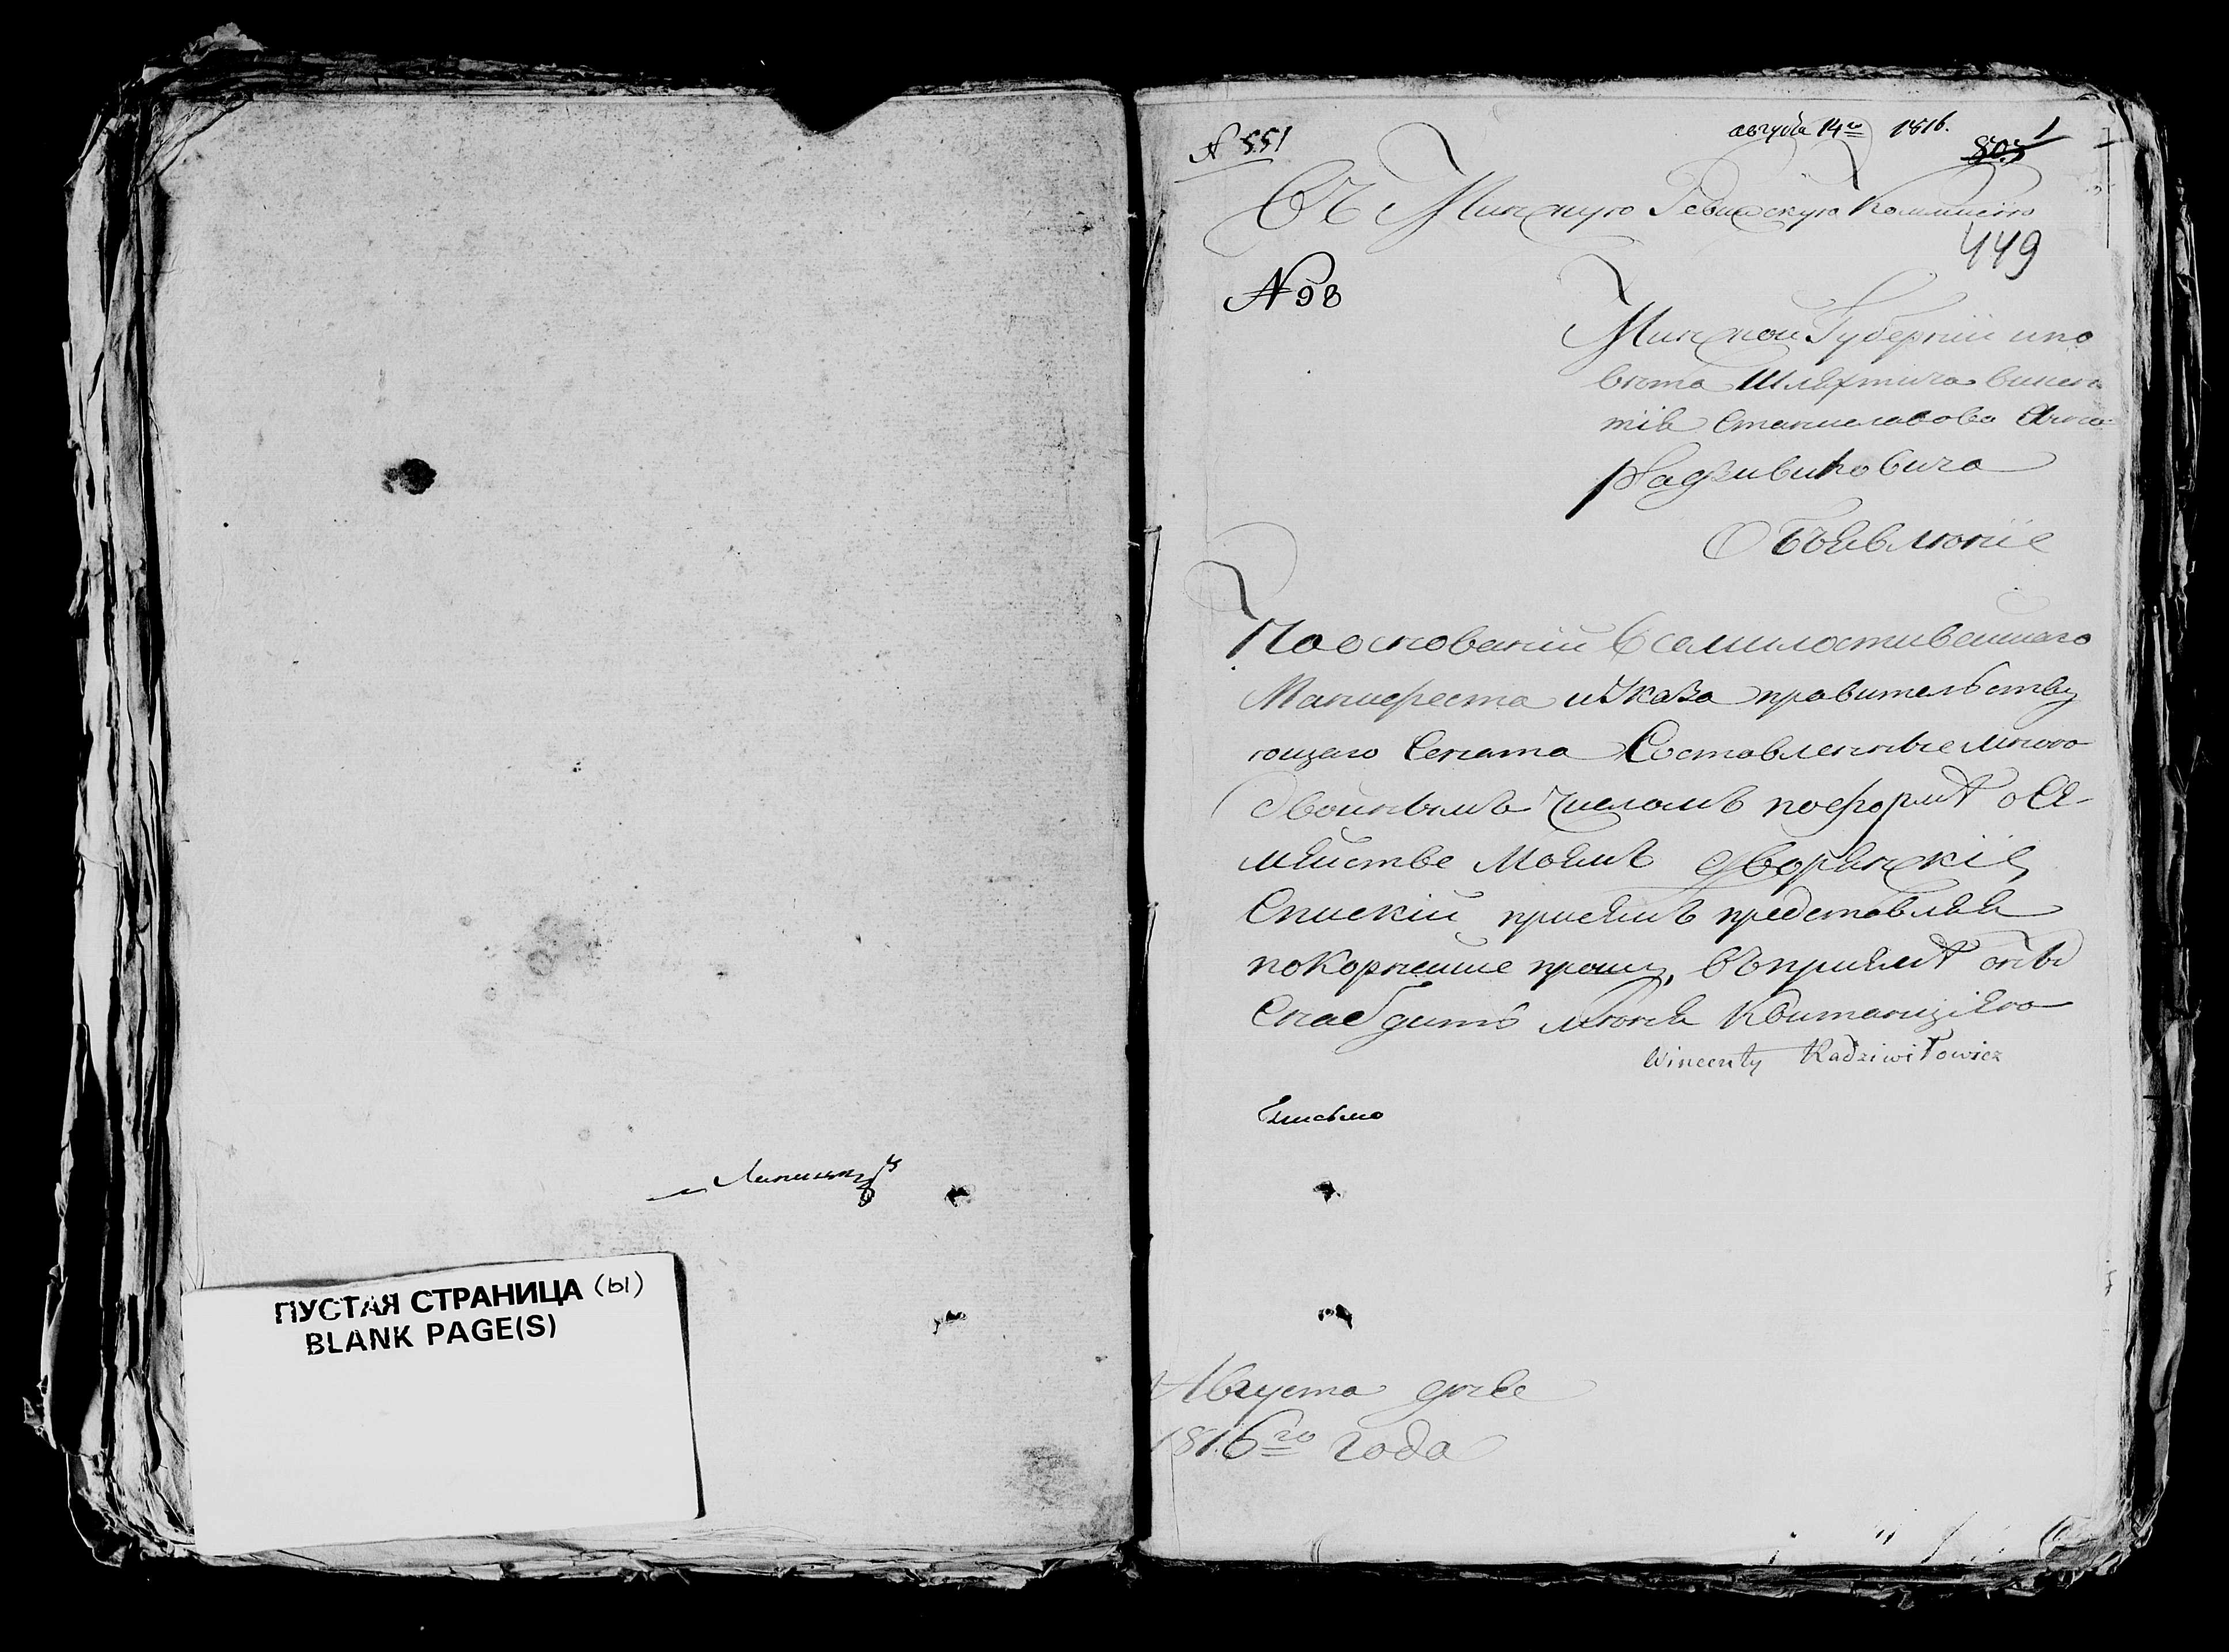 ПУСТАЯ СТРАНИЦА (ы)
BLANK PAGE(S)
№ 551
августа 14го 1816.
805 1
Въ Минскую Ревизскую Коммисію
449
№ 98
Минской Губерніи и по
вѣта Шляхтича Викен
тія Станиславова Сына
Радзивиловича
Объявленіе
По основаніи Всемилостивейшаго
Манифеста и Указа правительству
ющаго Сената Составленные мною
двойнымъ числомъ поформѣ о Се-
мействе Моемъ дворянскіе
Списки присемъ представляя
покорнейше прошу, въ приемѣ оны
Снабдить меня Квитанціею
Wincenty Radziwiłowicz
Августа дня
1816го года